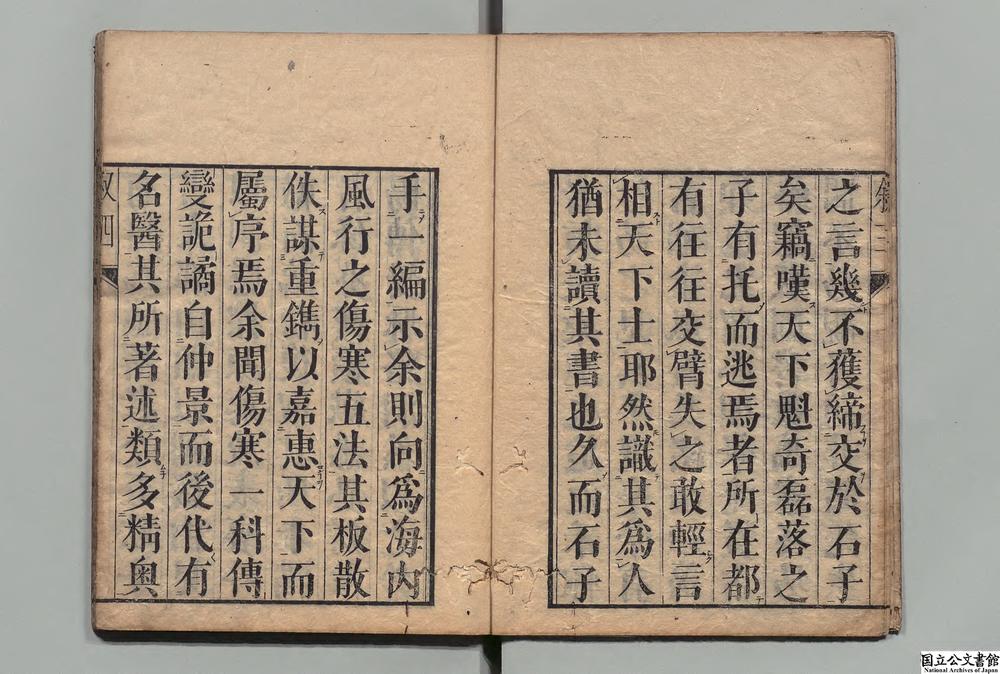 之言幾不獲締交於石子
矣竊嘆天下魁奇磊落之
子有托而逃焉者所在都
有往往交臂失之敢輕言
相天下士耶然識其爲人
猶未讀其書也久而石子
手一編示余則向爲海内
風行之傷寒五法其板散
佚謀重鐫以嘉惠天下而
屬序焉余聞傷寒一科傳
變詭譎自仲景而後代有
名醫其所著述類多精奥
叙四
国立公文書館
National Archives of Japan